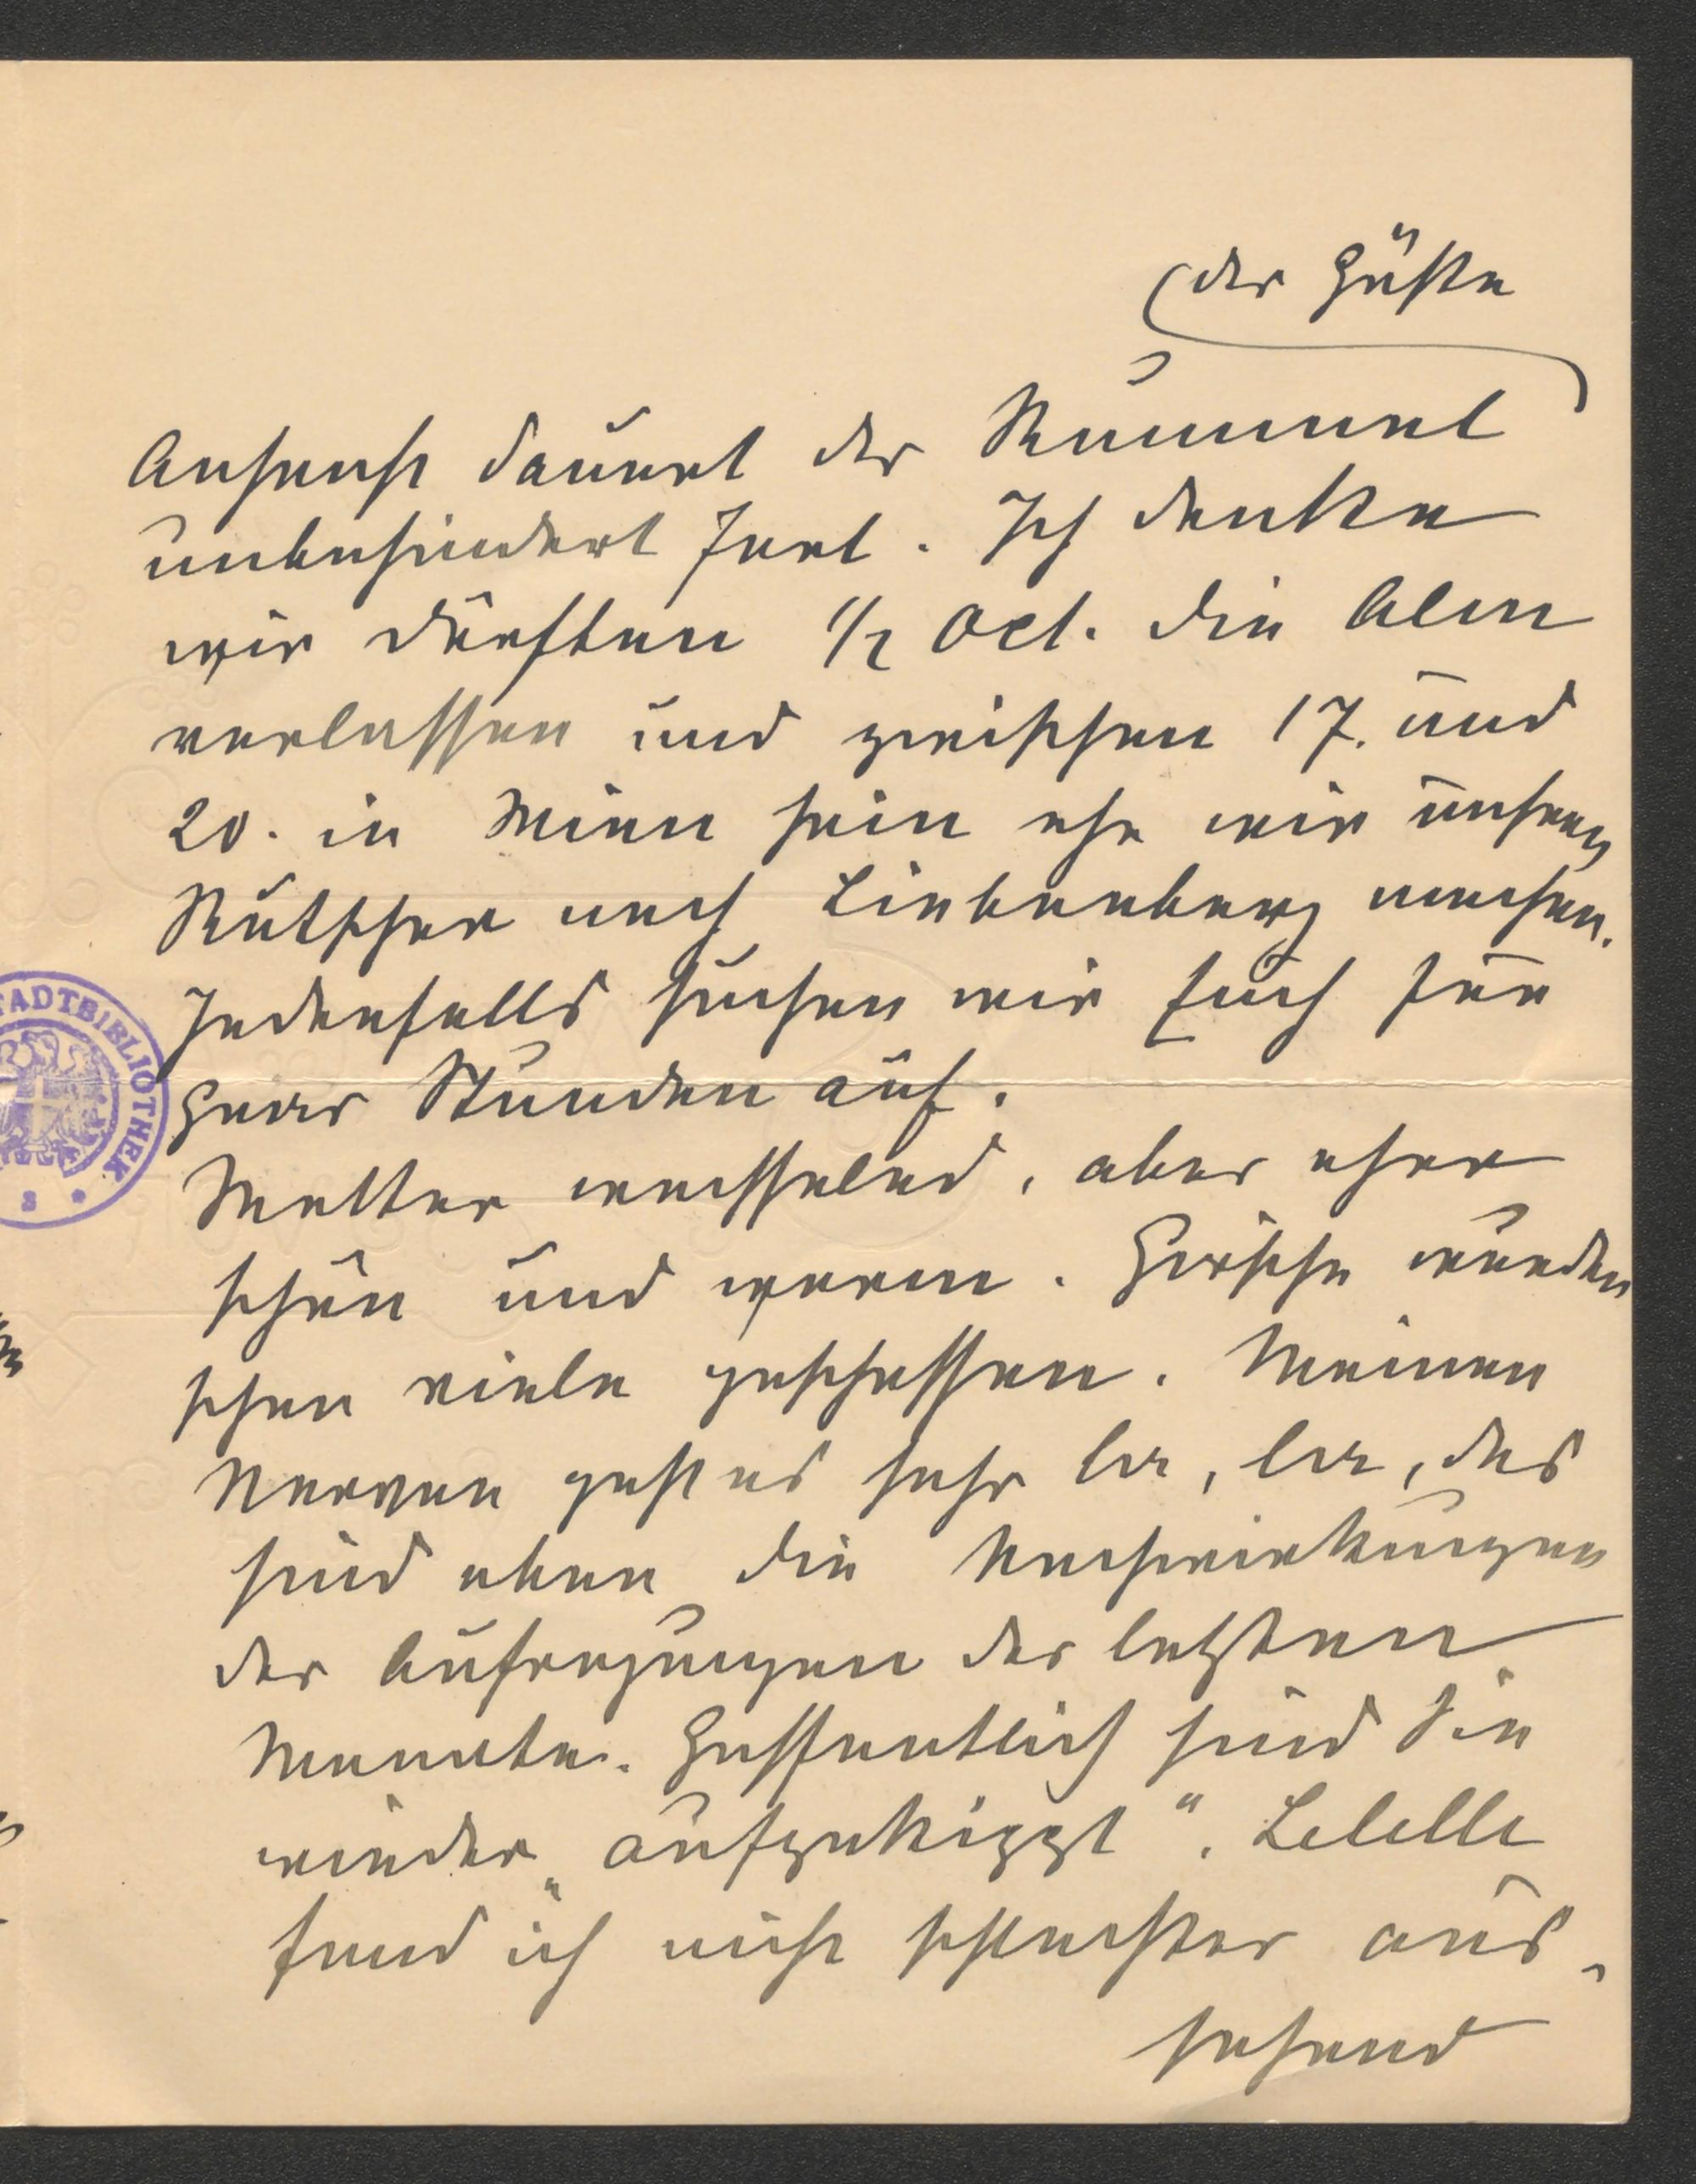 (der Gäste
Ansonst dauert der Rummel
unbehindert fort. Ich denke
wir dürften 1/2 Oct. die Alm
verlassen und zwischen 17. und
20. in Wien sein ehe wir unseren
Rutscher nach Liebenberg machen.
Jedenfalls suchen wir Euch für
paar Stunden auf.
Wetter wechselnd, aber eher
schön und warm. Hirsche wurden
schon viele geschossen. Meinen
Nerven geht es sehr la, la, das
sind eben die Nachwirkungen
der Aufregungen der letzten
Monate. Hoffentlich sind Sie
wieder „aufgekiggt“. Lolello
fand ich nicht schlechter aus-
sehend
STADTBIBLIOTHEK